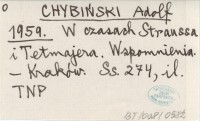 o CHYBIŃSKI Adolf
1959. W czasach Straussa
i Tetmajera. Wspomnienia.
– Kraków. Ss. 274, il.
TNP